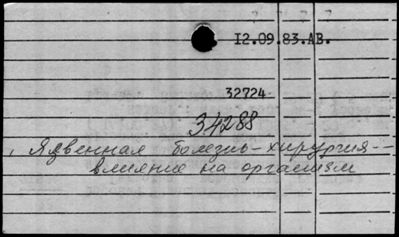 12.09.83.АВ.
32724
34288
Язвенная болезнь-хирургия-
влияние на организм